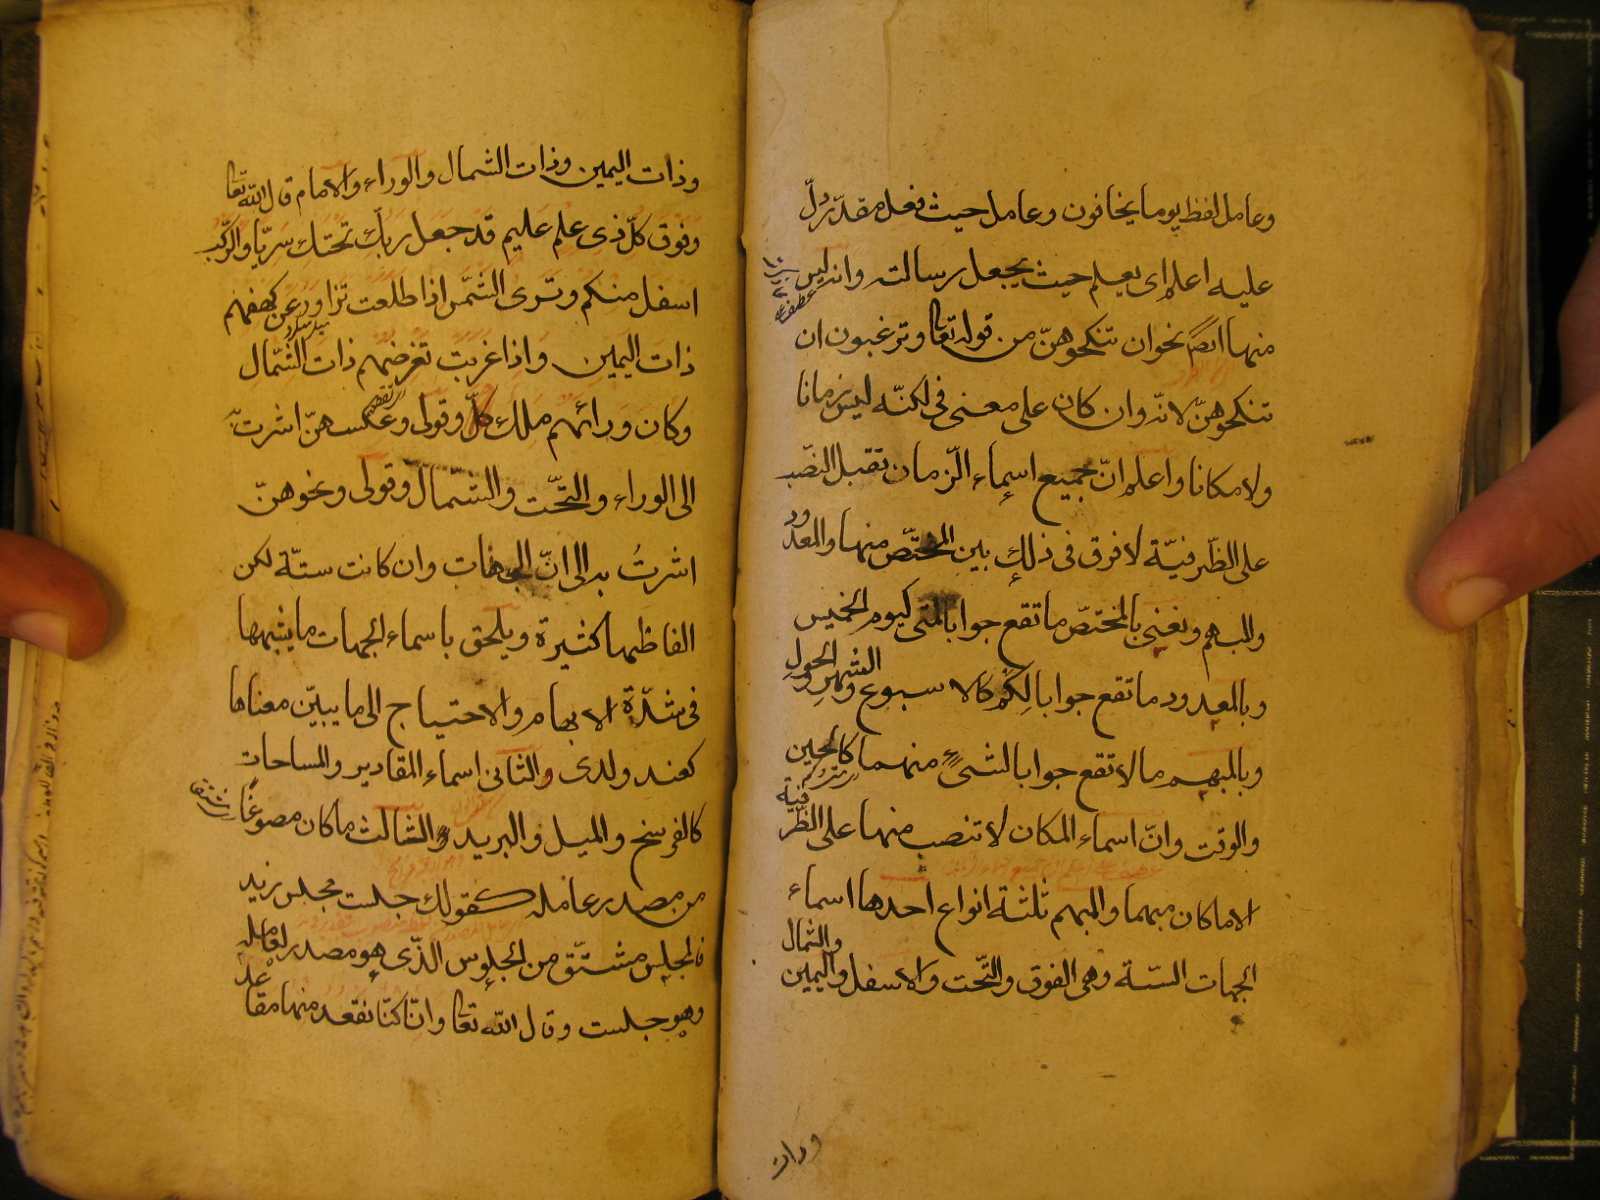 وعامل لفظ يوما يخافون وعامل حيث فعل مقدّر دلّ
عليه اعلم اى يعلم حيث يجعل رسالته وانه ليس
منها ايضا نحو ان تنكحوهنّ من قوله تعا وترغبون ان
تنكحوهنّ لانّه وان كان على معنى فى لكنّه ليس زمانا
ولا مكانا واعلم انّ جميع اسماء الزّمان تقبل النصّب
على الظّرفيّة لا فرق فى ذلك بين المختصّ منها والمعدود
والمبهم ونعنى بالمختصّ ما تقع جوابا لمتى كيوم الخميس
وبالمعدود ما تقع جوابا لكم كالاسبوع والشهر والحول
وبالمبهم ما لا تقع جوابا لشئ منهما كالحين
والوقت وانّ اسماء المكان لا تنصب منها على الظّرفية
الا ما كان مبهما والمبهم ثلثة انواع احدها اسماء
الجهات الستة وهى الفوق والتّحت والاسفل واليمين والشمال
وذات
وذات اليمين وذات الشمال والوراء والامام قال الله تعا
وفوق كلّ ذى علم عليم قد جعل ربك تحتك سريّا والرّكب
اسفل منكم وترى الشّمس اذا طلعت تزاور عن كهفهم
ذات اليمين واذا غربت تقرضهم ذات الشّمال
وكان ورائهم ملك كلّ وقولى وعكسهنّ اشرت
الى الوراء والتّحت والشّمال وقولى ونحوهنّ
اشرتُ به الى انّ الجهات وان كانت ستّة لكن
الفاظها كثيرة ويلحق باسماء الجهات ما يشبهها
فى شدّة الابهام والاحتياج الى ما يبيّن معناها
كعند ولدى والثانى اسماء المقادير والمساحات
كالفرسخ والميل والبريد والثالث ما كان مصوغًا
من مصدر عامله كقولك جلست مجلس زيد
فالمجلس مشتقّ من الجلوس الذّى هو مصدر لعامله
وهو جلست وقال الله تعا وانّا كنّا نقعد منها مقاعد